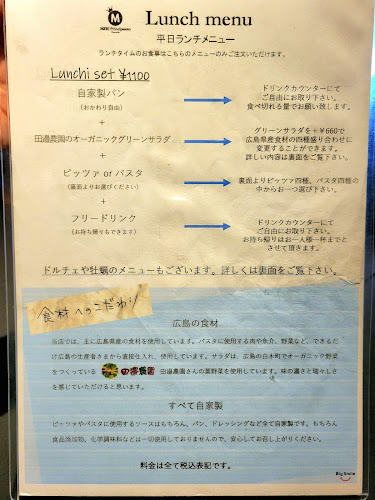 M
Lunch menu
平日ランチメニュー
ランチタイムのお食事はこちらのメニューのみご注文いただけます。
Lunchi set ¥1100
自家製パン
(おかわり自由)
ドリンクカウンターにて
ご自由にお取り下さい。
食べ切れる量でお願い致します。
+
田邉農園のオーガニックグリーンサラダ
グリーンサラダを+¥660で
広島県産食材の四種盛り合わせに
変更することができます。
詳しい内容は裏面をご覧下さい。
+
ピッツァ or パスタ
(裏面よりお選びください)
裏面よりピッツァ四種、パスタ四種の
中からお一つ選び下さい。
+
フリードリンク
(お持ち帰りもできます)
ドリンクカウンターにて
ご自由にお取り下さい。
お持ち帰りはお一人様一杯までと
させて頂きます。
ドルチェや牡蠣のメニューもございます。詳しくは裏面をご覧下さい。
食材へのこだわり
広島の食材
当店では、主に広島県産の食材を使用しています。パスタに使用する肉や魚介、野菜など、できるだ
け広島の生産者さまから直接仕入れ、使用しています。サラダは、広島の白木町でオーガニック野菜
をつくっている 田邉農園 田邉農園さんの葉野菜を使用しています。味の濃さと瑞々しさ
を感じていただけると思います。
すべて自家製
ピッツァやパスタに使用するソースはもちろん、パン、ドレッシングなど全て自家製です。もちろん
食品添加物、化学調味料などは一切使用しておりませんので、安心してお召し上がりください。
料金は全て税込表記です。
Big Smile